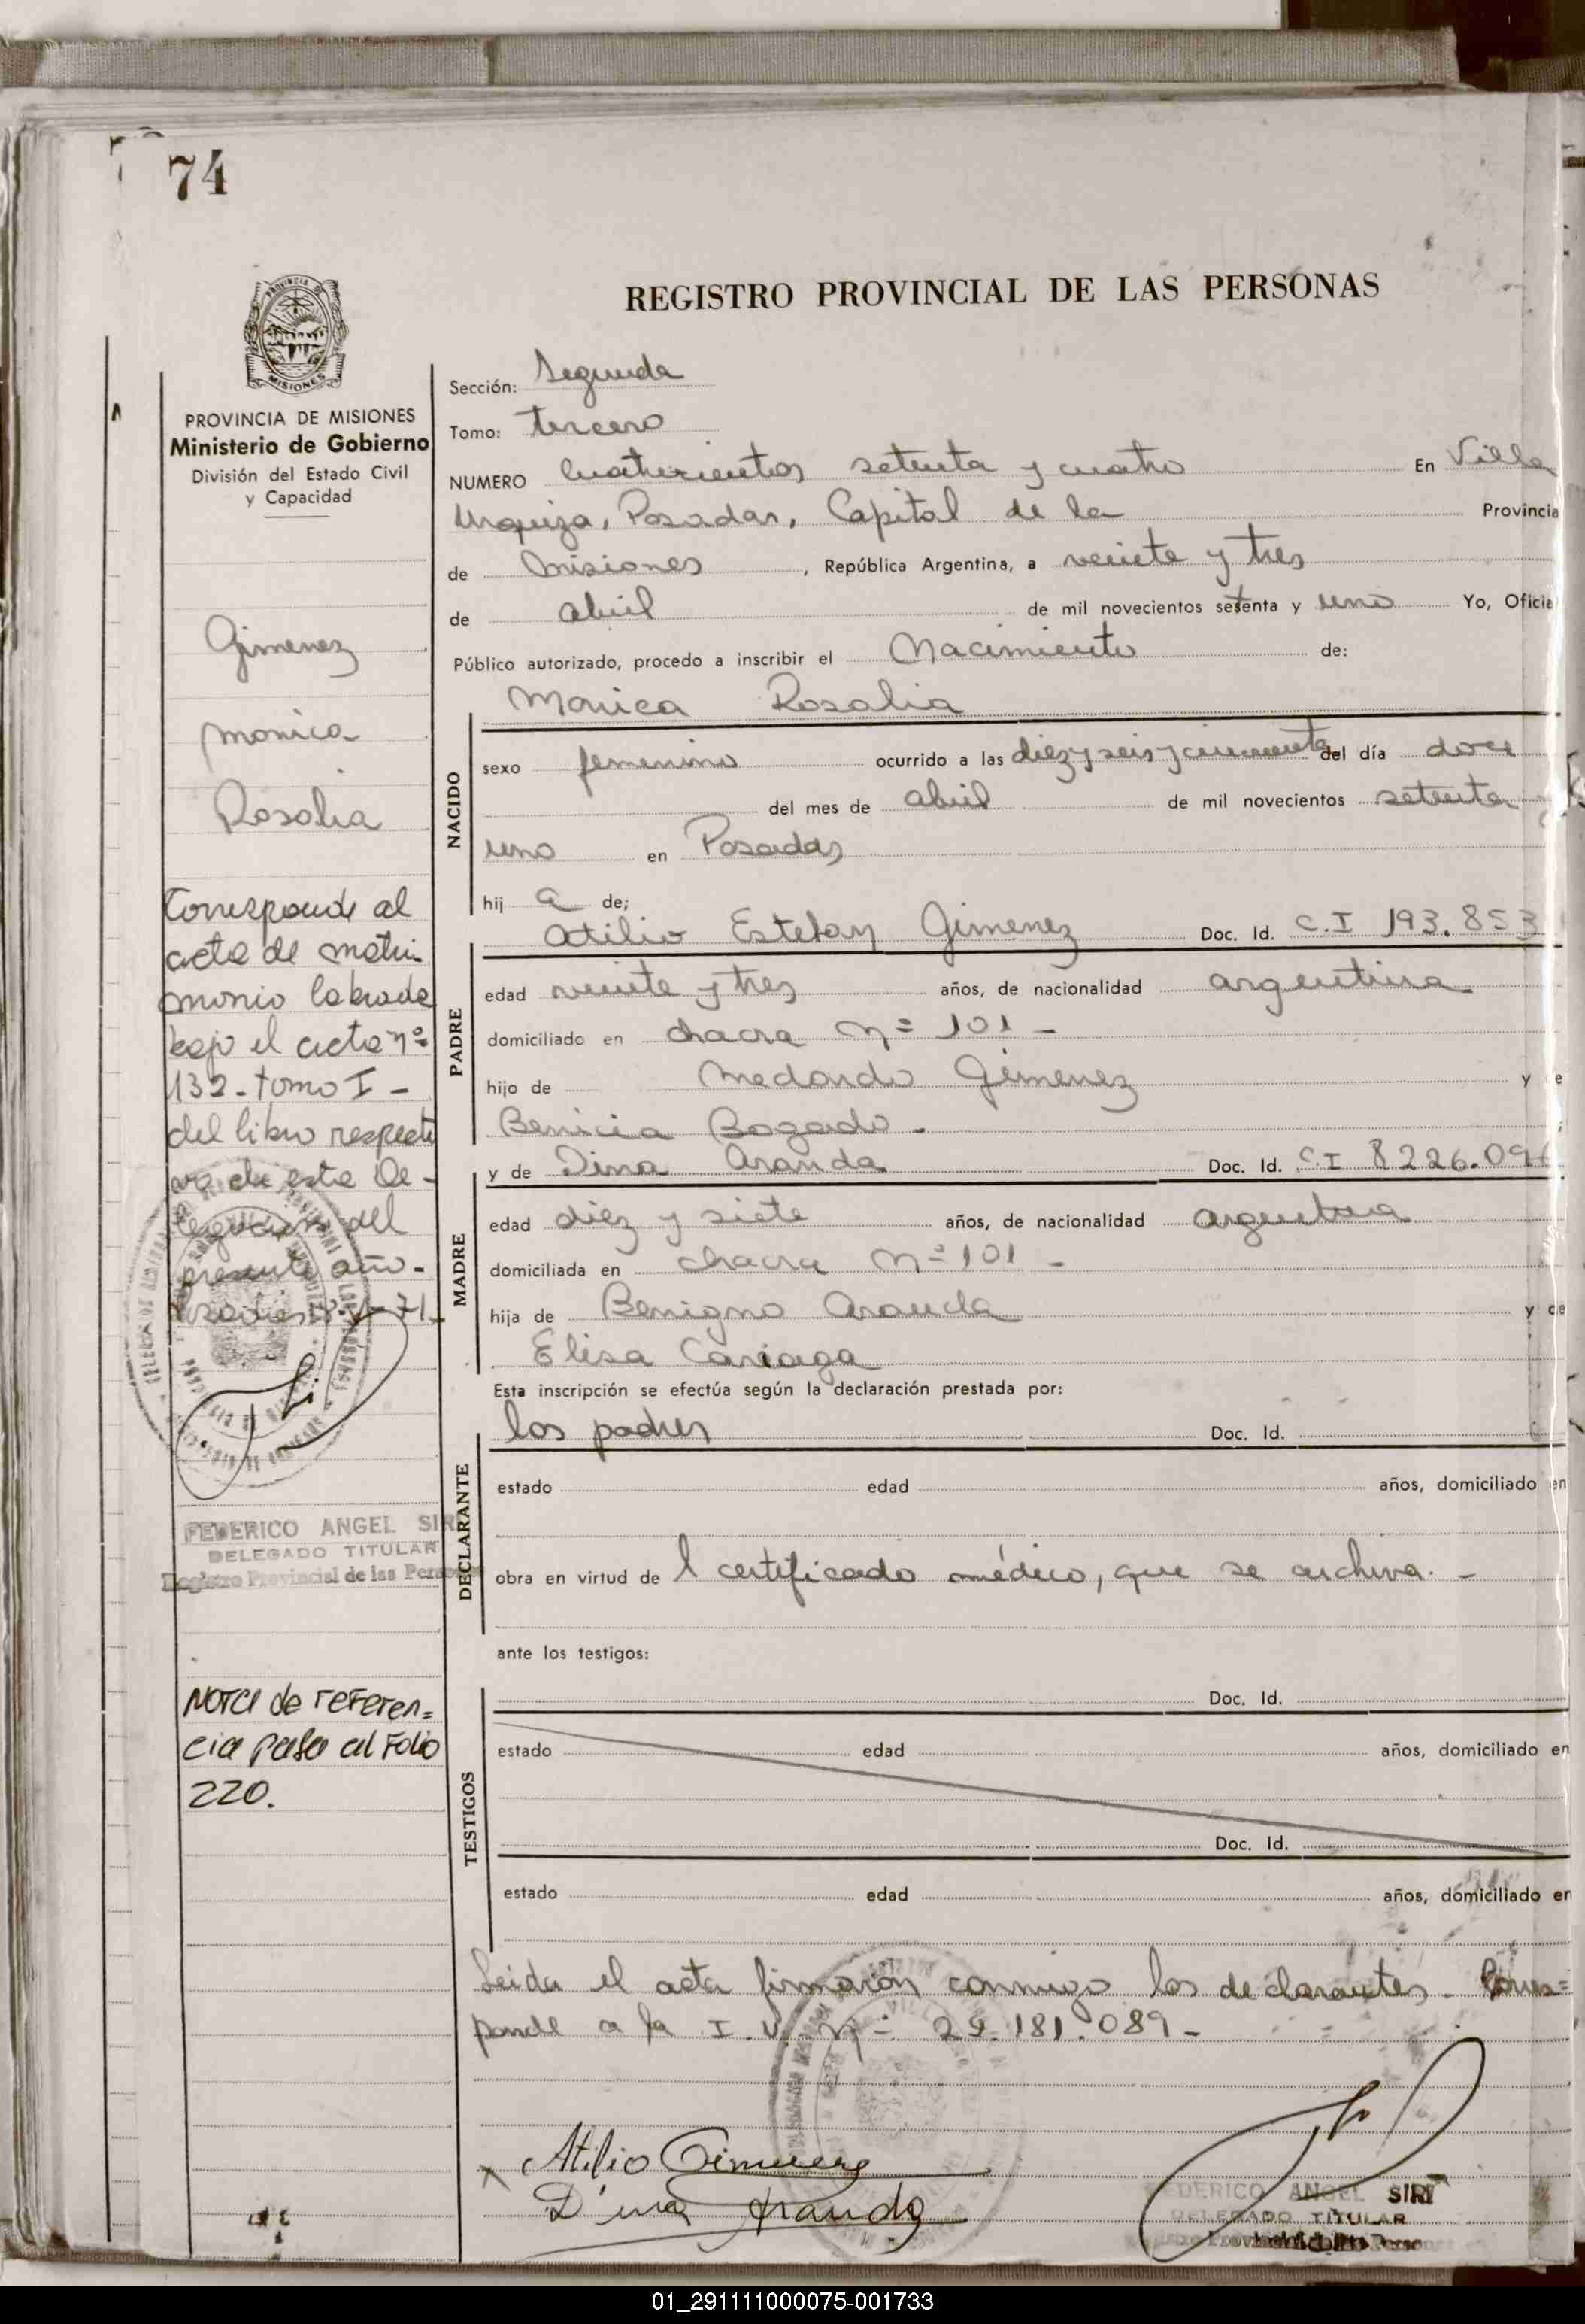 74
REGISTRO PROVINCIAL DE LAS PERSONAS
PROVINCIA DE
MISIONES
PROVINCIA DE MISIONES
Ministerio de Gobierno
División del Estado Civil
y Capacidad
Gimenez
Monica
Rosalia
Corresponde al
acta de matri-
monio labrada
bajo el acta nº
132 - tomo I -
del libro respecti
vo de esta De-
legacion del
presente año-
FEDERICO ANGEL SIRI
DELEGADO TITULAR
Registro Provincial de las Personas
Nota de referen=
cia pasa al Folio
220.
Sección: Segunda
Tomo: tercero
NUMERO Cuatrocientos setenta y cuatro En Villa
Urquiza, Posadas, Capital de la Provincia
de Misiones, República Argentina, a veinte y tres
de abril de mil novecientos setenta y uno Yo, Oficial
Público autorizado, procedo a inscribir el Nacimiento de:
Monica Rosalia
NACIDO
sexo femenino ocurrido a las diez y seis y cincuenta del día doce
del mes de abril de mil novecientos setenta
uno en Posadas
hij a de;
PADRE
Atilio Esteban Gimenez Doc. Id. C.I 193.853
edad veinte y tres años, de nacionalidad argentina
domiciliado en chacra Nº 101 -
hijo de Medardo Gimenez y de
Benicia Bogado.
MADRE
y de Dina Aranda Doc. Id. C.I 8226.09
edad diez y siete años, de nacionalidad argentina
domiciliada en chacra Nº 101 -
hija de Benigno Aranda y de
Elisa Cariaga
Esta inscripción se efectúa según la declaración prestada por:
DECLARANTE
los padres Doc. Id.
estado edad años, domiciliado en
obra en virtud de l certificado médico, que se archiva. -
ante los testigos:
TESTIGOS
Doc. Id.
estado edad años, domiciliado en
Doc. Id.
estado edad años, domiciliado en
Leida el acta firmaron conmigo los declarantes. Corres=
ponde a la I. U. Nº 29.181.089 -
Atilio Gimenez
Dina Aranda
FEDERICO ANGEL SIRI
DELEGADO TITULAR
01_291111000075-001733